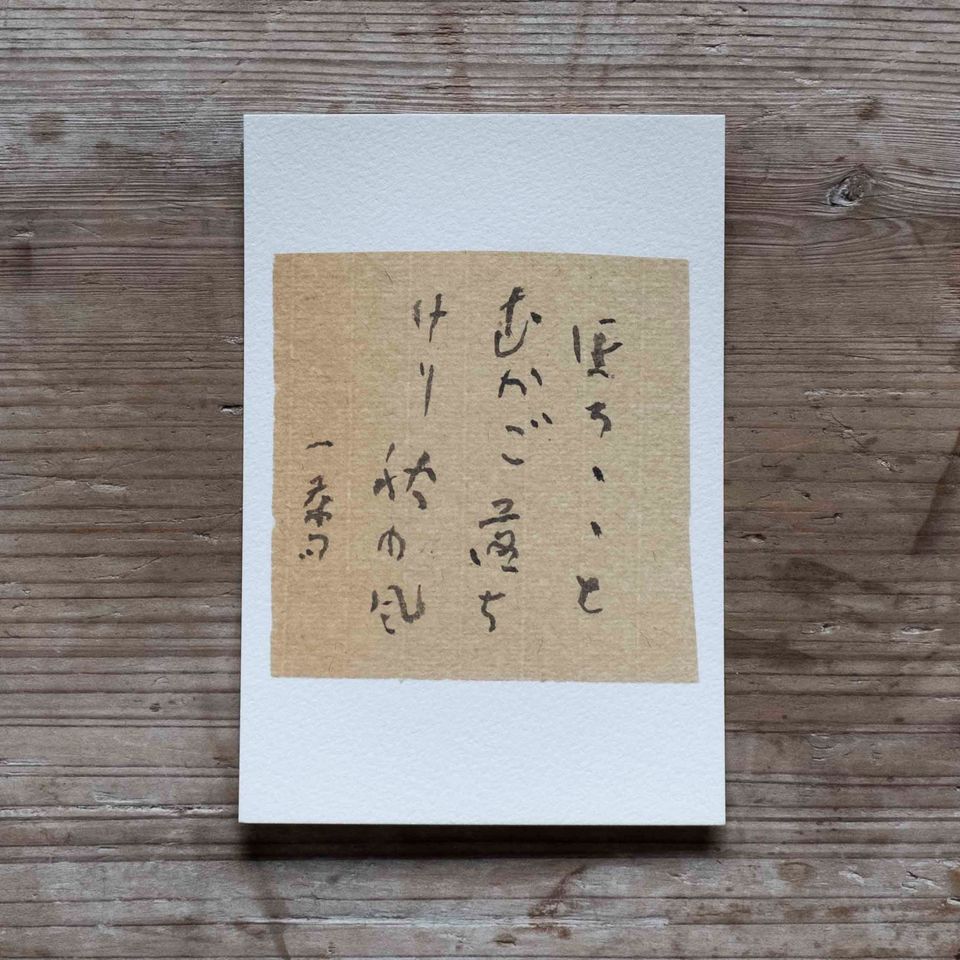 ほろゝゝと
むかご落ち
けり秋の風
一茶句